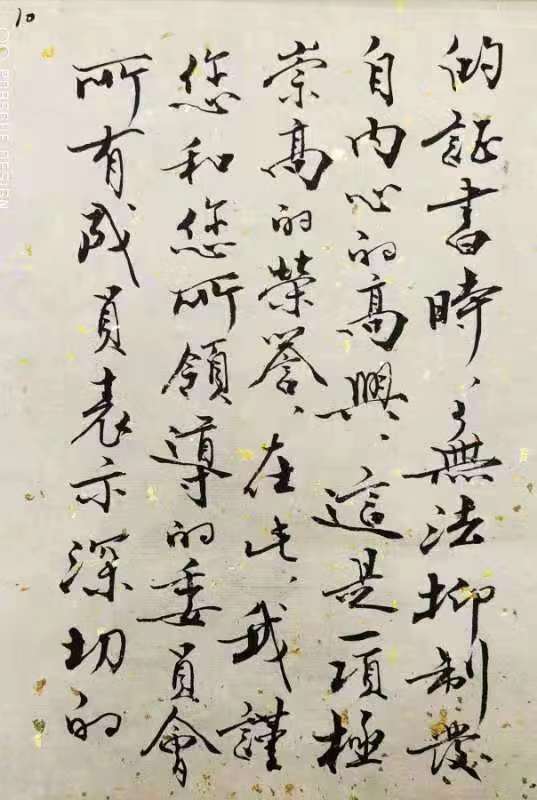 10
的証書時，無法抑制發
自内心的高興，這是一項極
崇高的榮譽，在此，我謹
您和您所領導的委員會
所有成員表示深切的
PORSCHE DESIGN